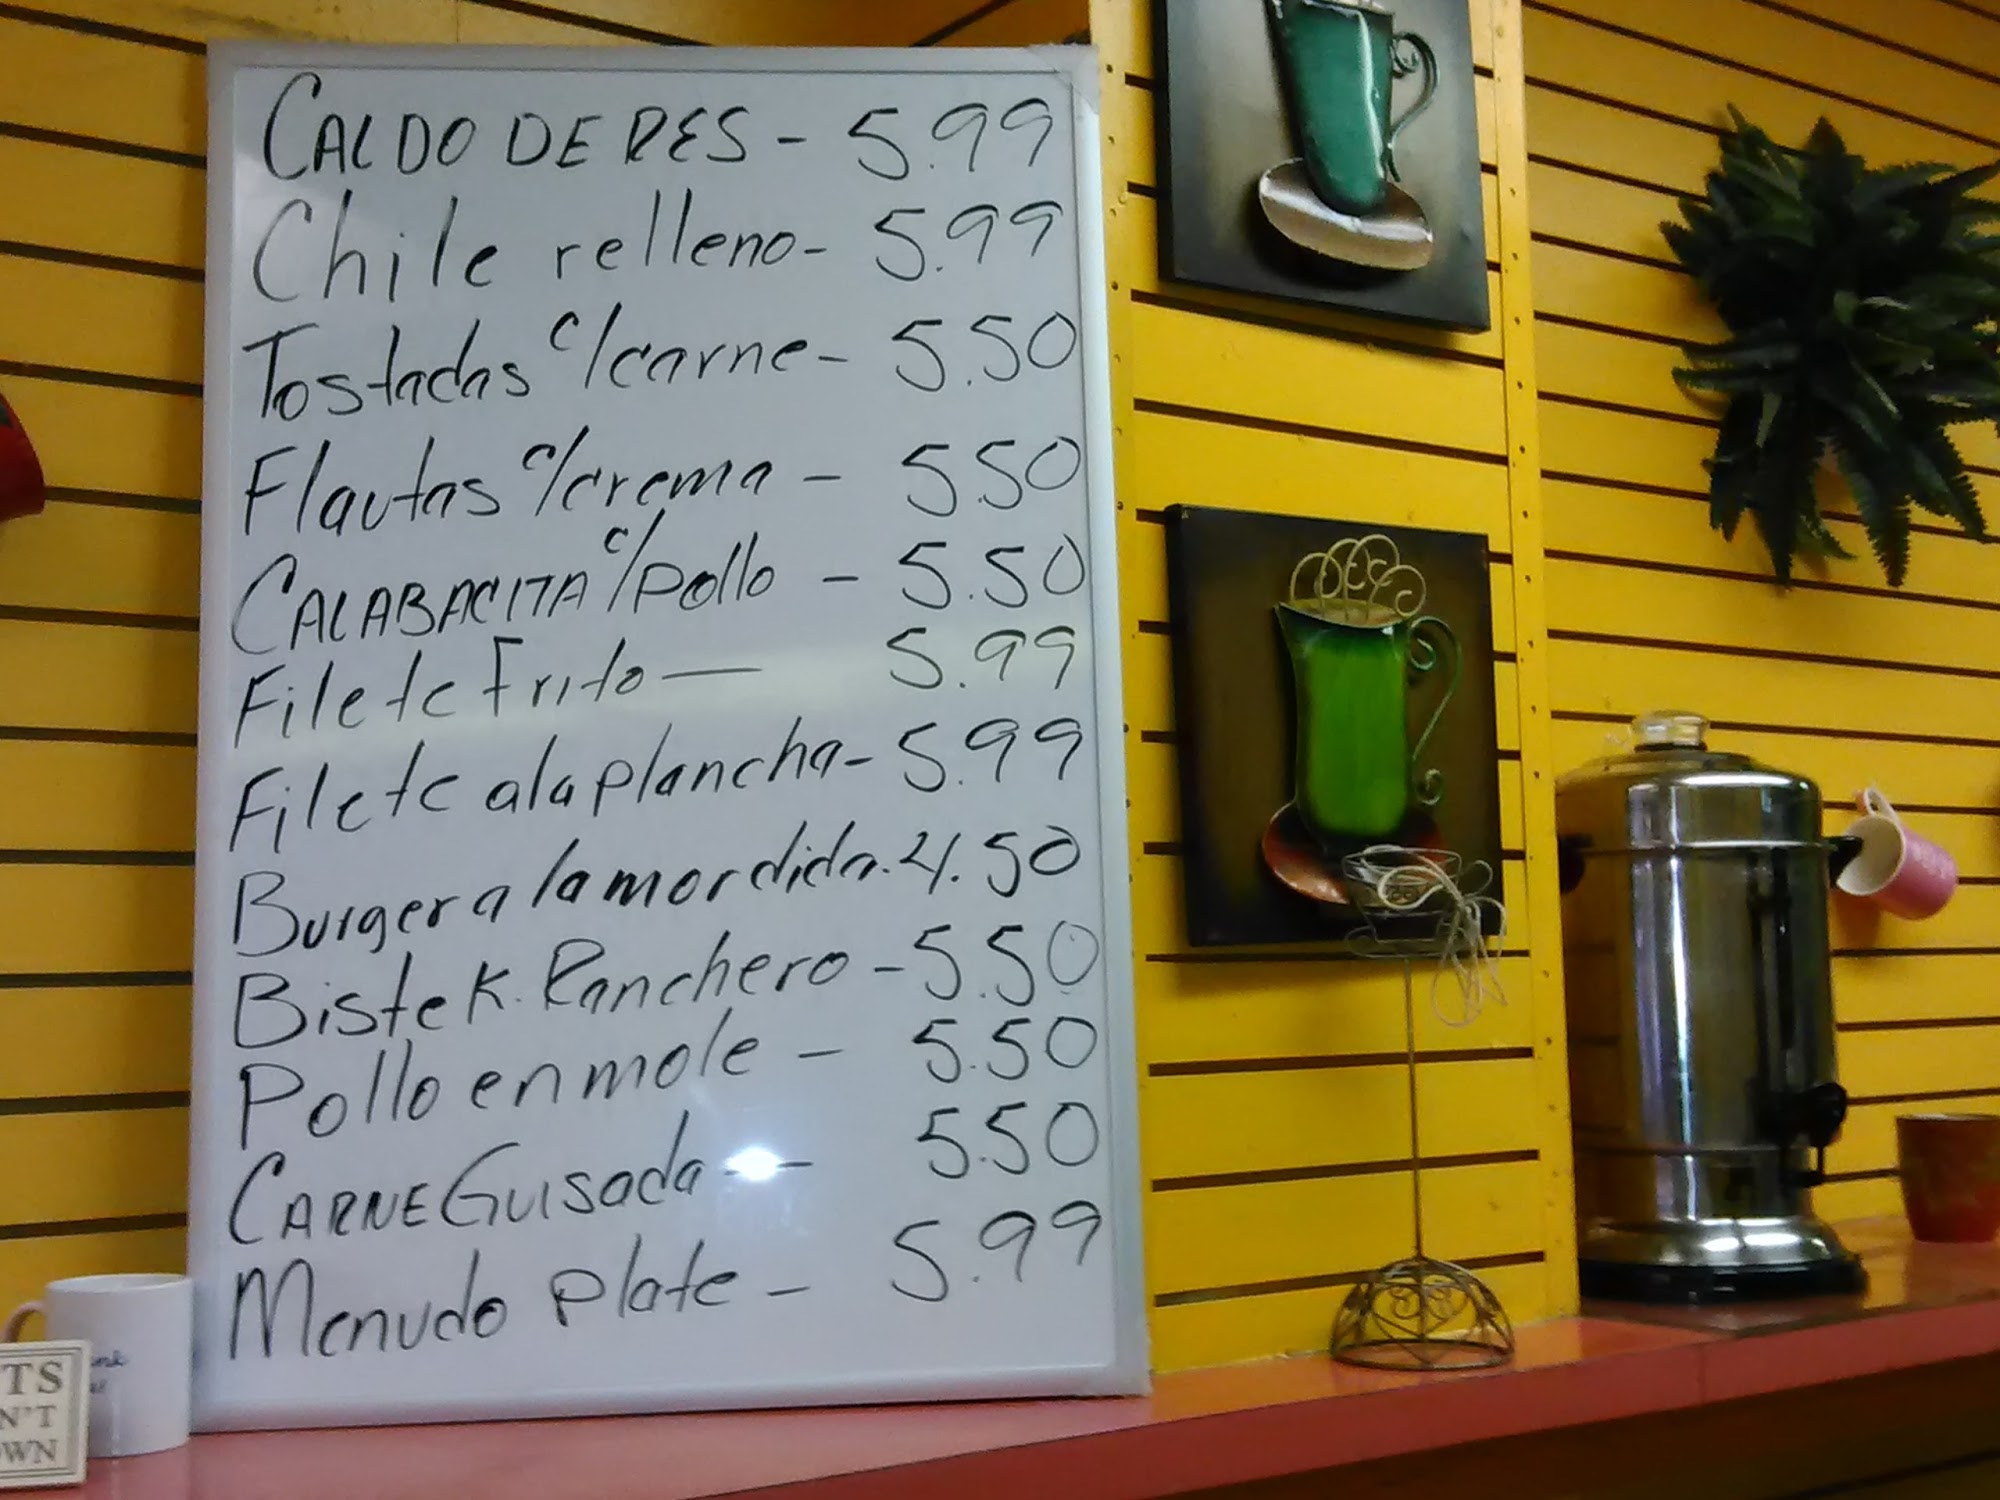 CALDO DE RES - 5.99
Chile relleno - 5.99
Tostadas c/carne - 5.50
Flautas c/crema - 5.50
CALABACITA c/pollo - 5.50
Filete Frito — 5.99
Filete a la plancha - 5.99
Burger a la mordida. 4.50
Bistek Ranchero - 5.50
Pollo en mole - 5.50
CARNE GUISada - - 5.50
Menudo plate - 5.99
TS
N'T
OWN